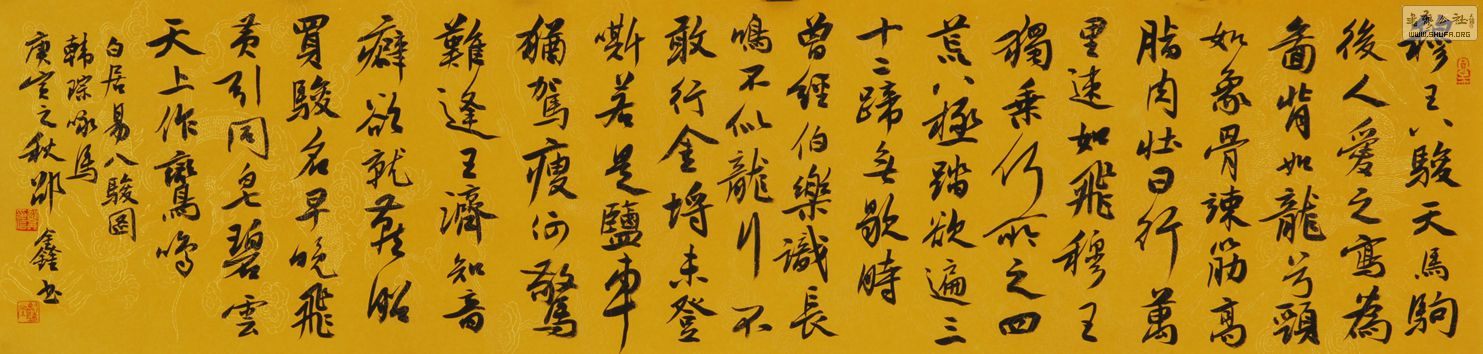 穆王八駿天馬駒
後人愛之寫為
圖背如龍兮頸
如象骨竦筋高
脂肉壯日行萬
里速如飛穆王
獨乘何所之四
荒八極踏欲遍三
十二蹄無歇時
曾經伯樂識長
鳴不似龍行不
敢行金埒未登
嘶若是鹽車
猶駕瘦何驚
難逢王濟知音
癖欲就燕昭
買駿名早晚飛
黃引同皂碧雲
天上作鸞鳴
白居易八駿圖
韩琮咏馬
庚寅之秋鑫书
书艺公社
WWW.SHUFA.ORG